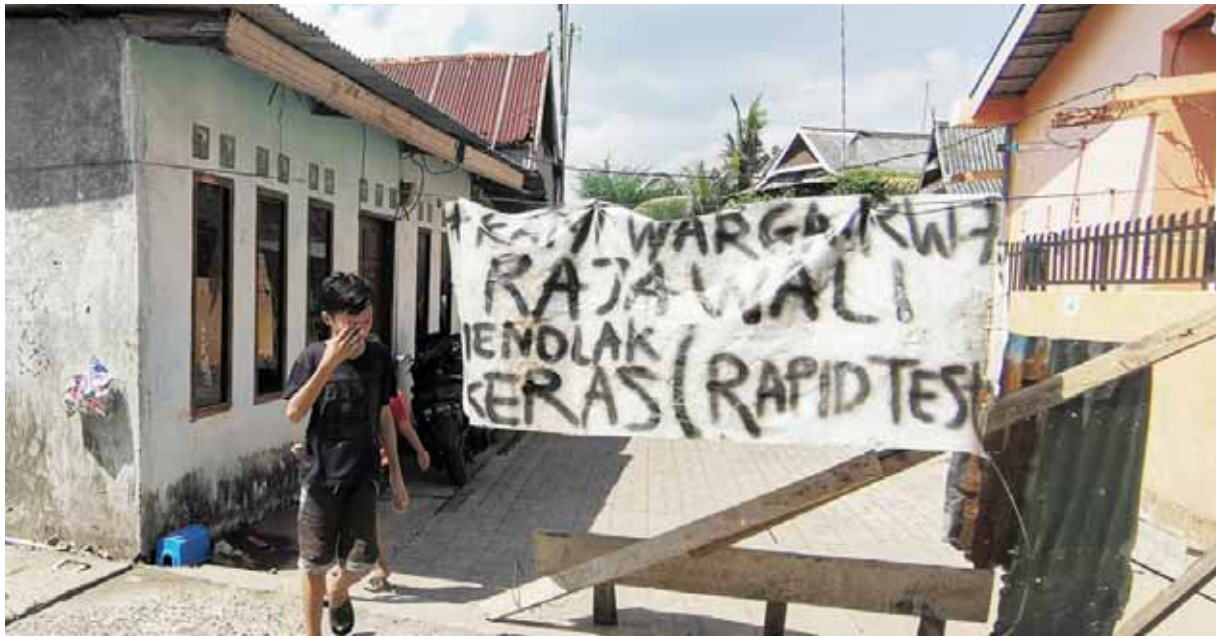 KAMI WARGA RW7
RAJAWALI
MENOLAK
KERAS (RAPID TEST